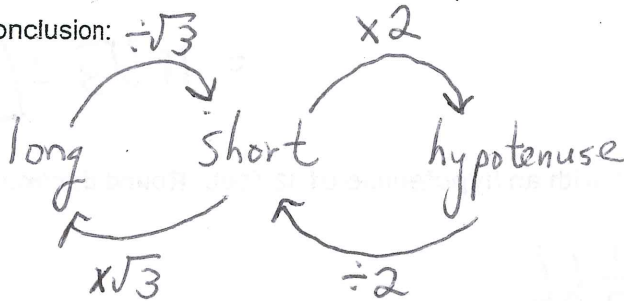 onclusion: ÷√3 ×2
long short hypotenuse
×√3 ÷2